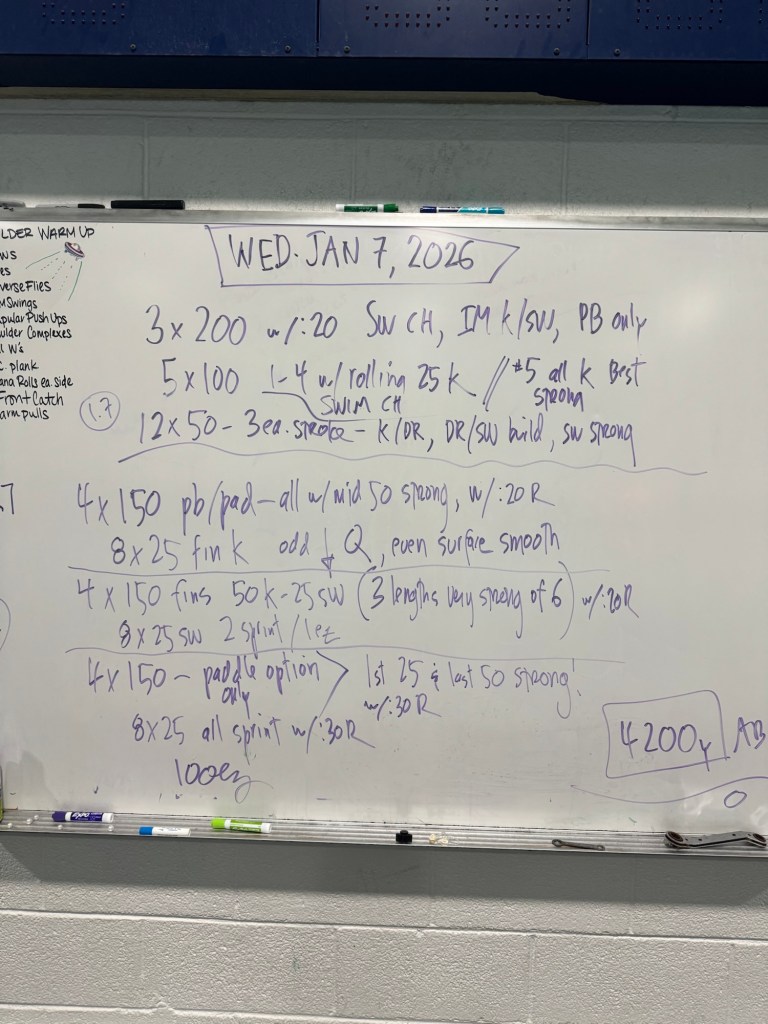 LDER WARM UP
WS
es
verse Flies
M Swings
apular Push Ups
ulder Complexes
l W's
c. plank
ana Rolls ea. side
Front Catch
arm pulls
WED. JAN 7, 2026
3 x 200 w/:20 SW CH, IM K/SW, PB only
5 x 100 1-4 w/ rolling 25 K // #5 all K Best
SWIM CH strong
1.7
12 x 50 - 3 ea. stroke - K/DR, DR/SW build, SW strong
4 x 150 pb/pad - all w/ mid 50 strong, w/:20R
8 x 25 fin k odd ↓ Q, even surface smooth
4 x 150 fins 50 k - 25 SW (3 lengths very strong of 6) w/:20R
8 x 25 SW 2 sprint / 1 ez
4 x 150 - paddle option > 1st 25 & last 50 strong!
only w/:30R
8 x 25 all sprint w/:30R
100 ez
4200y AB
EXPO